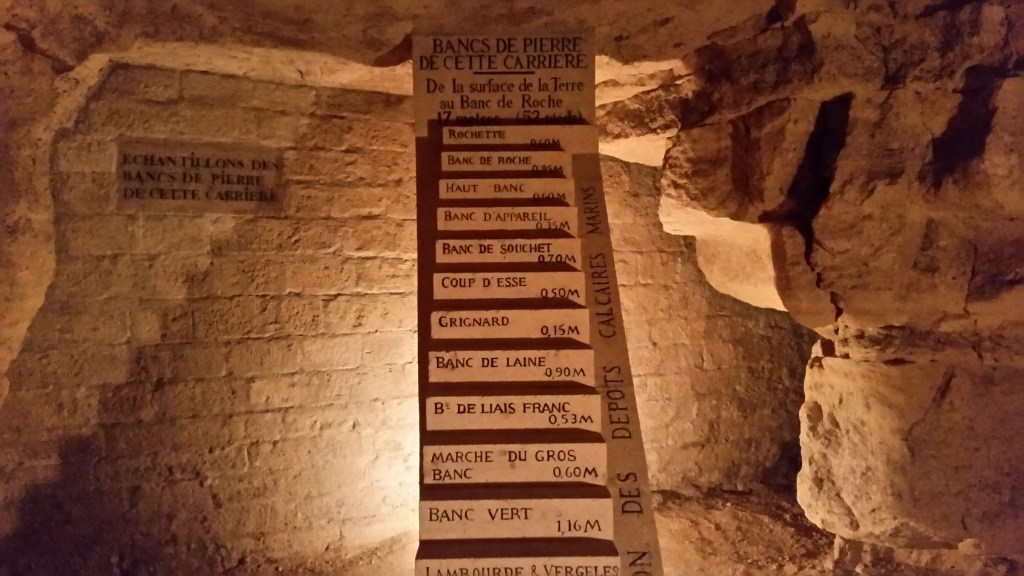 BANCS DE PIERRE
DE CETTE CARRIERE
De la surface de la Terre
au Banc de Roche
17 metres (52 pieds)
ECHANTILLONS DES
BANCS DE PIERRE
DE CETTE CARRIERE
ROCHETTE
0,60M
BANC DE ROCHE
HAUT BANC
0,60M
BANC D'APPAREIL
0,35M
BANC DE SOUCHET
0,70M
COUP D'ESSE
0,50M
GRIGNARD
0,15M
BANC DE LAINE
0,90M
Bᶜ DE LIAIS FRANC
0,53M
MARCHE DU GROS
BANC 0,60M
BANC VERT
1,16M
LAMBOURDE & VERGELES
ON DES DEPOTS CALCAIRES MARINS